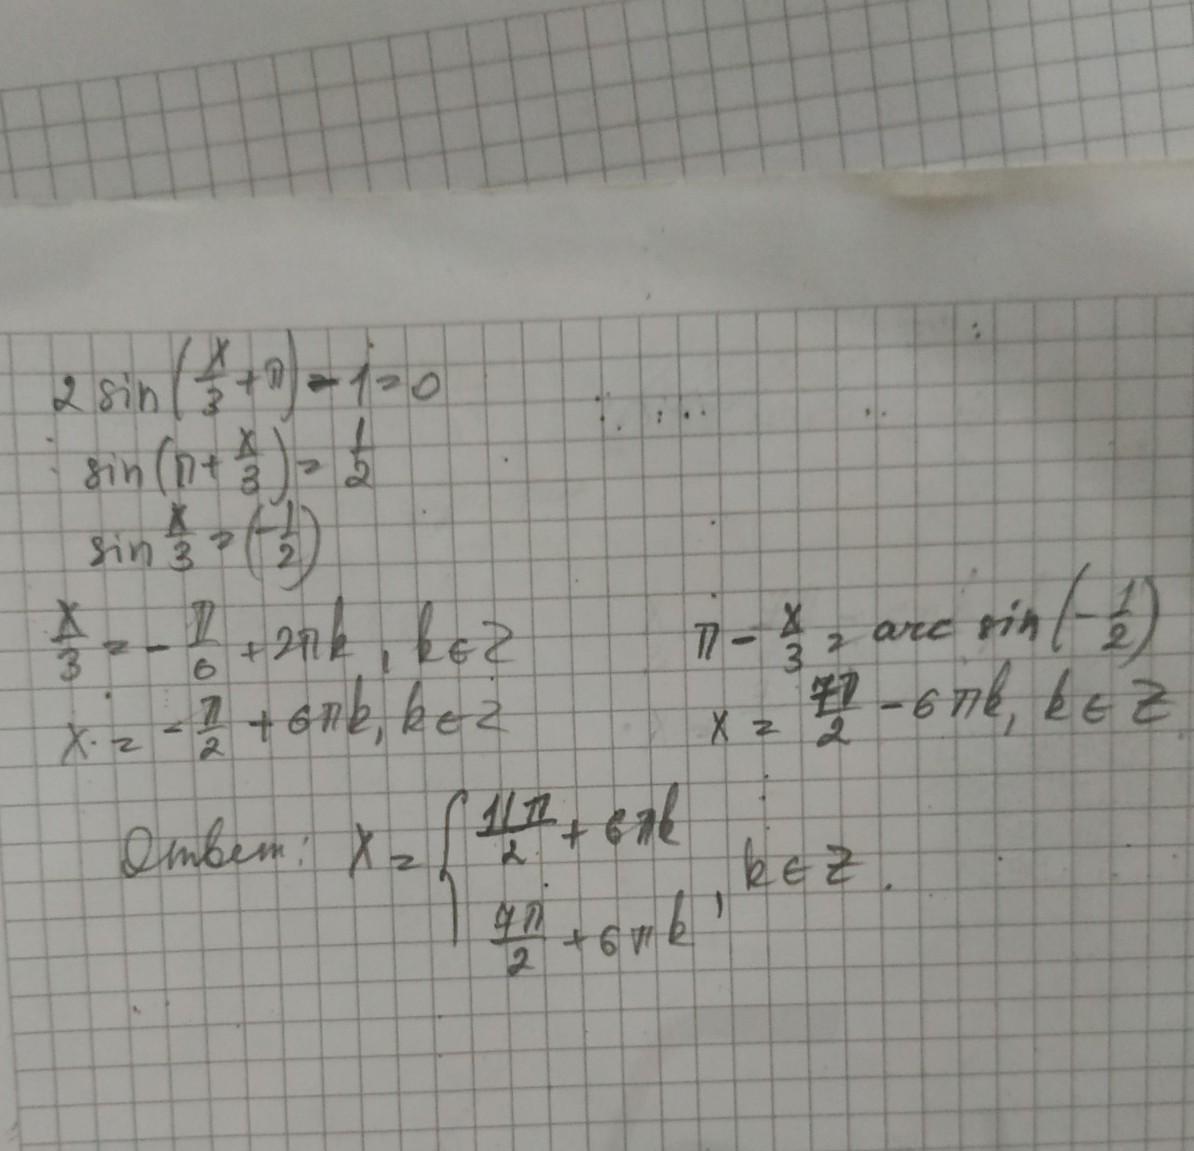 2 sin(x/3 + π) - 1 = 0
sin(π + x/3) = 1/2
sin x/3 = (-1/2)
x/3 = - π/6 + 2πk, k ∈ Z
π - x/3 = arc sin(-1/2)
x = - π/2 + 6πk, k ∈ Z
x = 7π/2 - 6πk, k ∈ Z
Ответ: x = { 11π/2 + 6πk
7π/2 + 6πk , k ∈ Z.